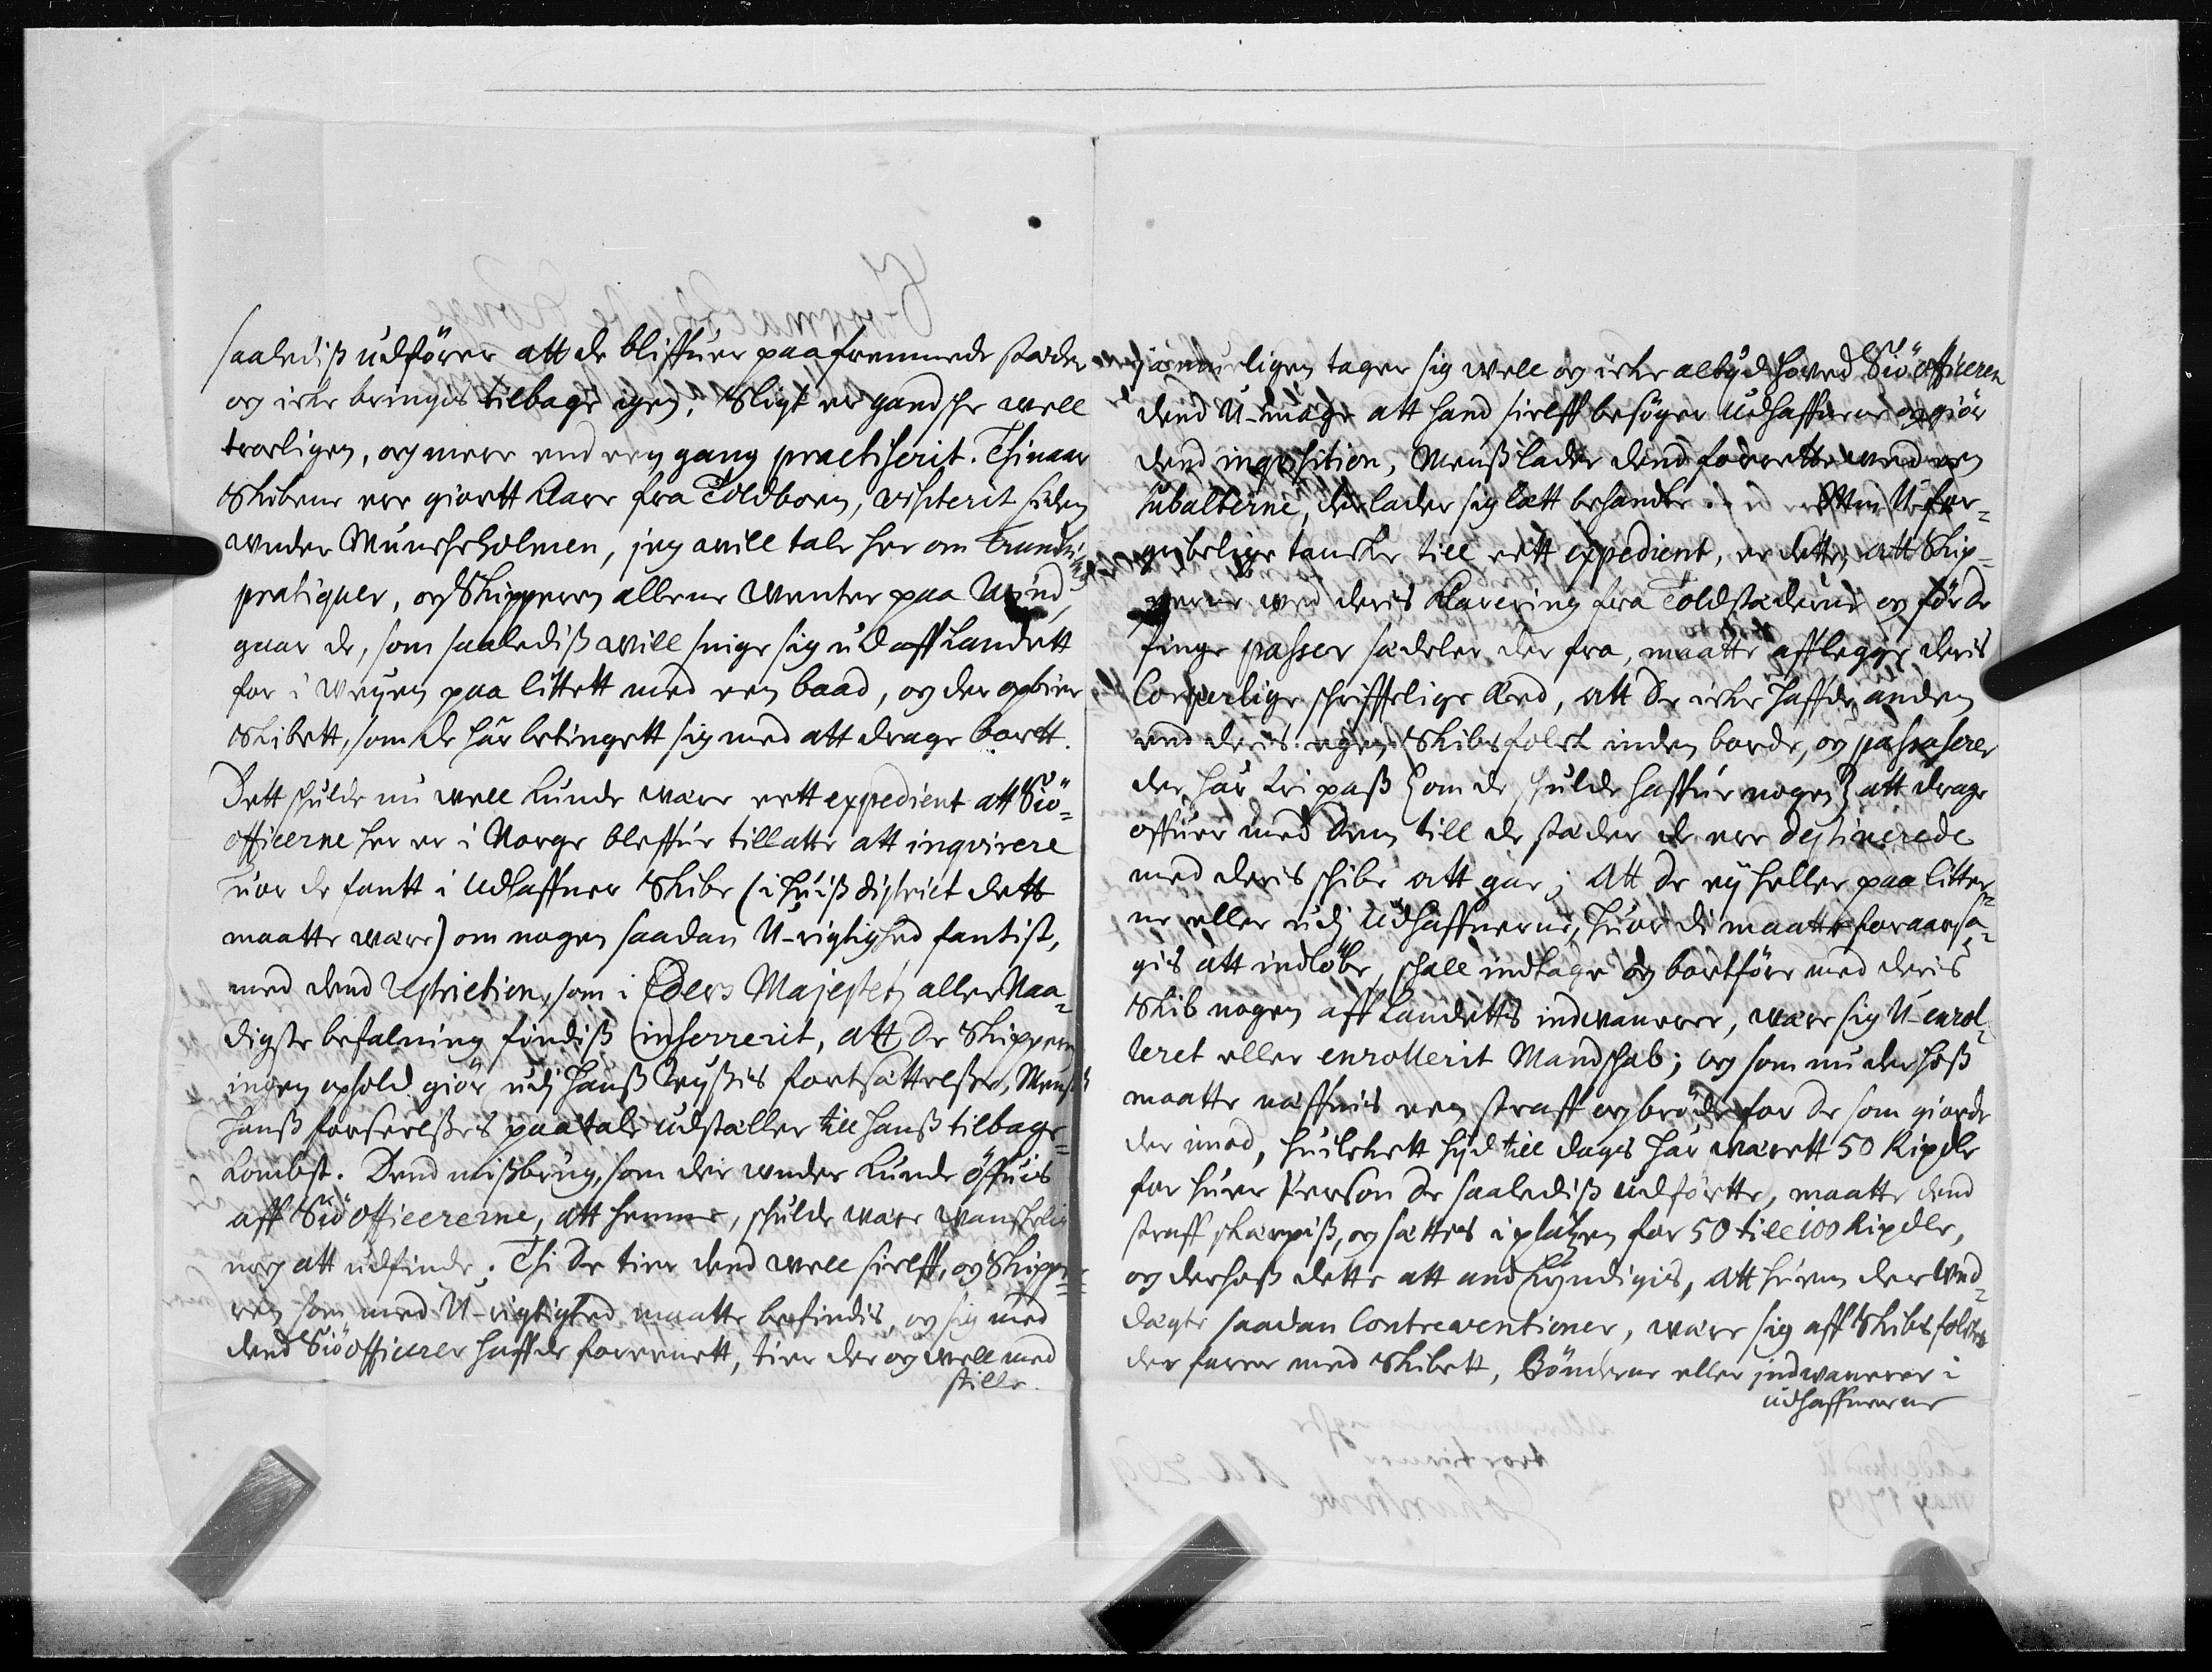 saalediß udförer att de bliffuer paa fremmede stæder
og icke bringis tilbage igen. Sligt er gandsche well
troeligen, og mere end een gang practiserit. Thi naar
Skibene ere giortt klare fra Toldboen, visiterit siden
under Munckholmen, jeg will tale her om Trondhims
pratiquer, og Skipperen allene wenter paa Wind,
gaar de, som saalediß will snige sig ud aff Landett
for i weyen paa littett med een baad, og der opbier
Skibett, som de har betingett sig med att drage bortt.
Dett schulde nu well kunde wære ett expedient att Siö-
officerne her er i Norge bleffue tillatte att inqvirere
uor de fantt i Udhaffner Skibe (i huiß district dett
maatte være) om nogen saadan U-rigtighed fantist,
med dend restriction, som i Eders Majestets aller Naa-
digste befalning findiß inserrerit, att de Skipperen
ingen ophold giör udj hanß Reyßis fortsættelße, Menß
hanß forseelßes paatale udstaller till hanß tilbage-
kombst. Dend mißbrug, som der under kunde öffuis
aff Siö Officererne, att hemme, schulde være wanschelig
nog att udfinde. Thi de tier dend well sielff, og Skippe-
ren som med U-rigtighed maatte befindis, og sig med
dend Siöofficerer haffde foreenett, tier der og well med
stille.
jæmerligen tager sig well og icke altyd hoved Siö Officeren
dend U-mage att hand sielff besöger Udhaffnerne og giör
dend inqvisition, Menß lader dend forrette med een
subalterne, der lader sig lætt behandle. Min U-for-
gribelige tancke till ett expedient, er dette, att Skip-
perne wed deris Klarering fra Toldstæderne og för de
finge passer sædeler der fra, maatte afflegge deris
Corperlige schrifftlige Æed, att de icke haffde anden
end deris egen Skibsfolck inden borde, og passaserer
der har frj paß (om de schulde haffue nogen) att drage
offuer med dem till de stæder de ere destinerede
med deris schibe att gae; Att de ey heller paa litter-
ne eller udj Udhaffnerne, huor di maatte foraarsa-
gis att indlöbe, schall indtage og bortföre med deris
Skib nogen aff Landetts indvaanere, være sig U-enrol-
leret eller enrollerit Mandschab; og som nu derhoß
maatte næffnis een straff og bröde for de som giorde
der imod, huilckett hid till dags har værett 50 Rixdlr
for huer Person de saalediß udförtte, maatte dend
straff skærpiß, og sættes i platzen for 50 till 100 Rixdlr,
og derhoß dette att and kyndigis, att huem der Und-
dægte saadan Contraventioner, være sig aff Skibsfolckett
der farer med Skibett, Bönderne eller indvaanere i
udhaffnerne